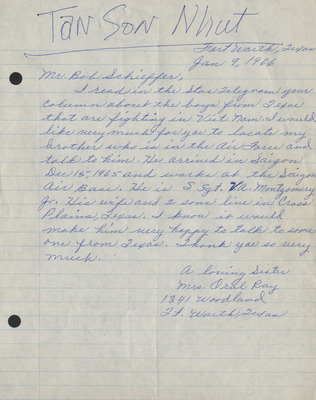 TAN SON Nhut
Fort Worth, Texas
Jan 9, 1966
Mr. Bob Schieffer,
I read in the Star Telegram your
column about the boys from Texas
that are fighting in Viet Nam. I would
like very much for you to locate my
brother who is in the Air Force and
talk to him. He arrived in Saigon
Dec 15, 1965 and works at the Saigon
Air Base. He is S Sgt. Montgomery
Jr. His wife and 2 sons live in Cross
Plains, Texas. I know it would
make him very happy to talk to some
one from Texas. Thank you so very
much.
A loving Sister
Mrs. Oral Ray
1341 Woodland
Ft. Worth, Texas